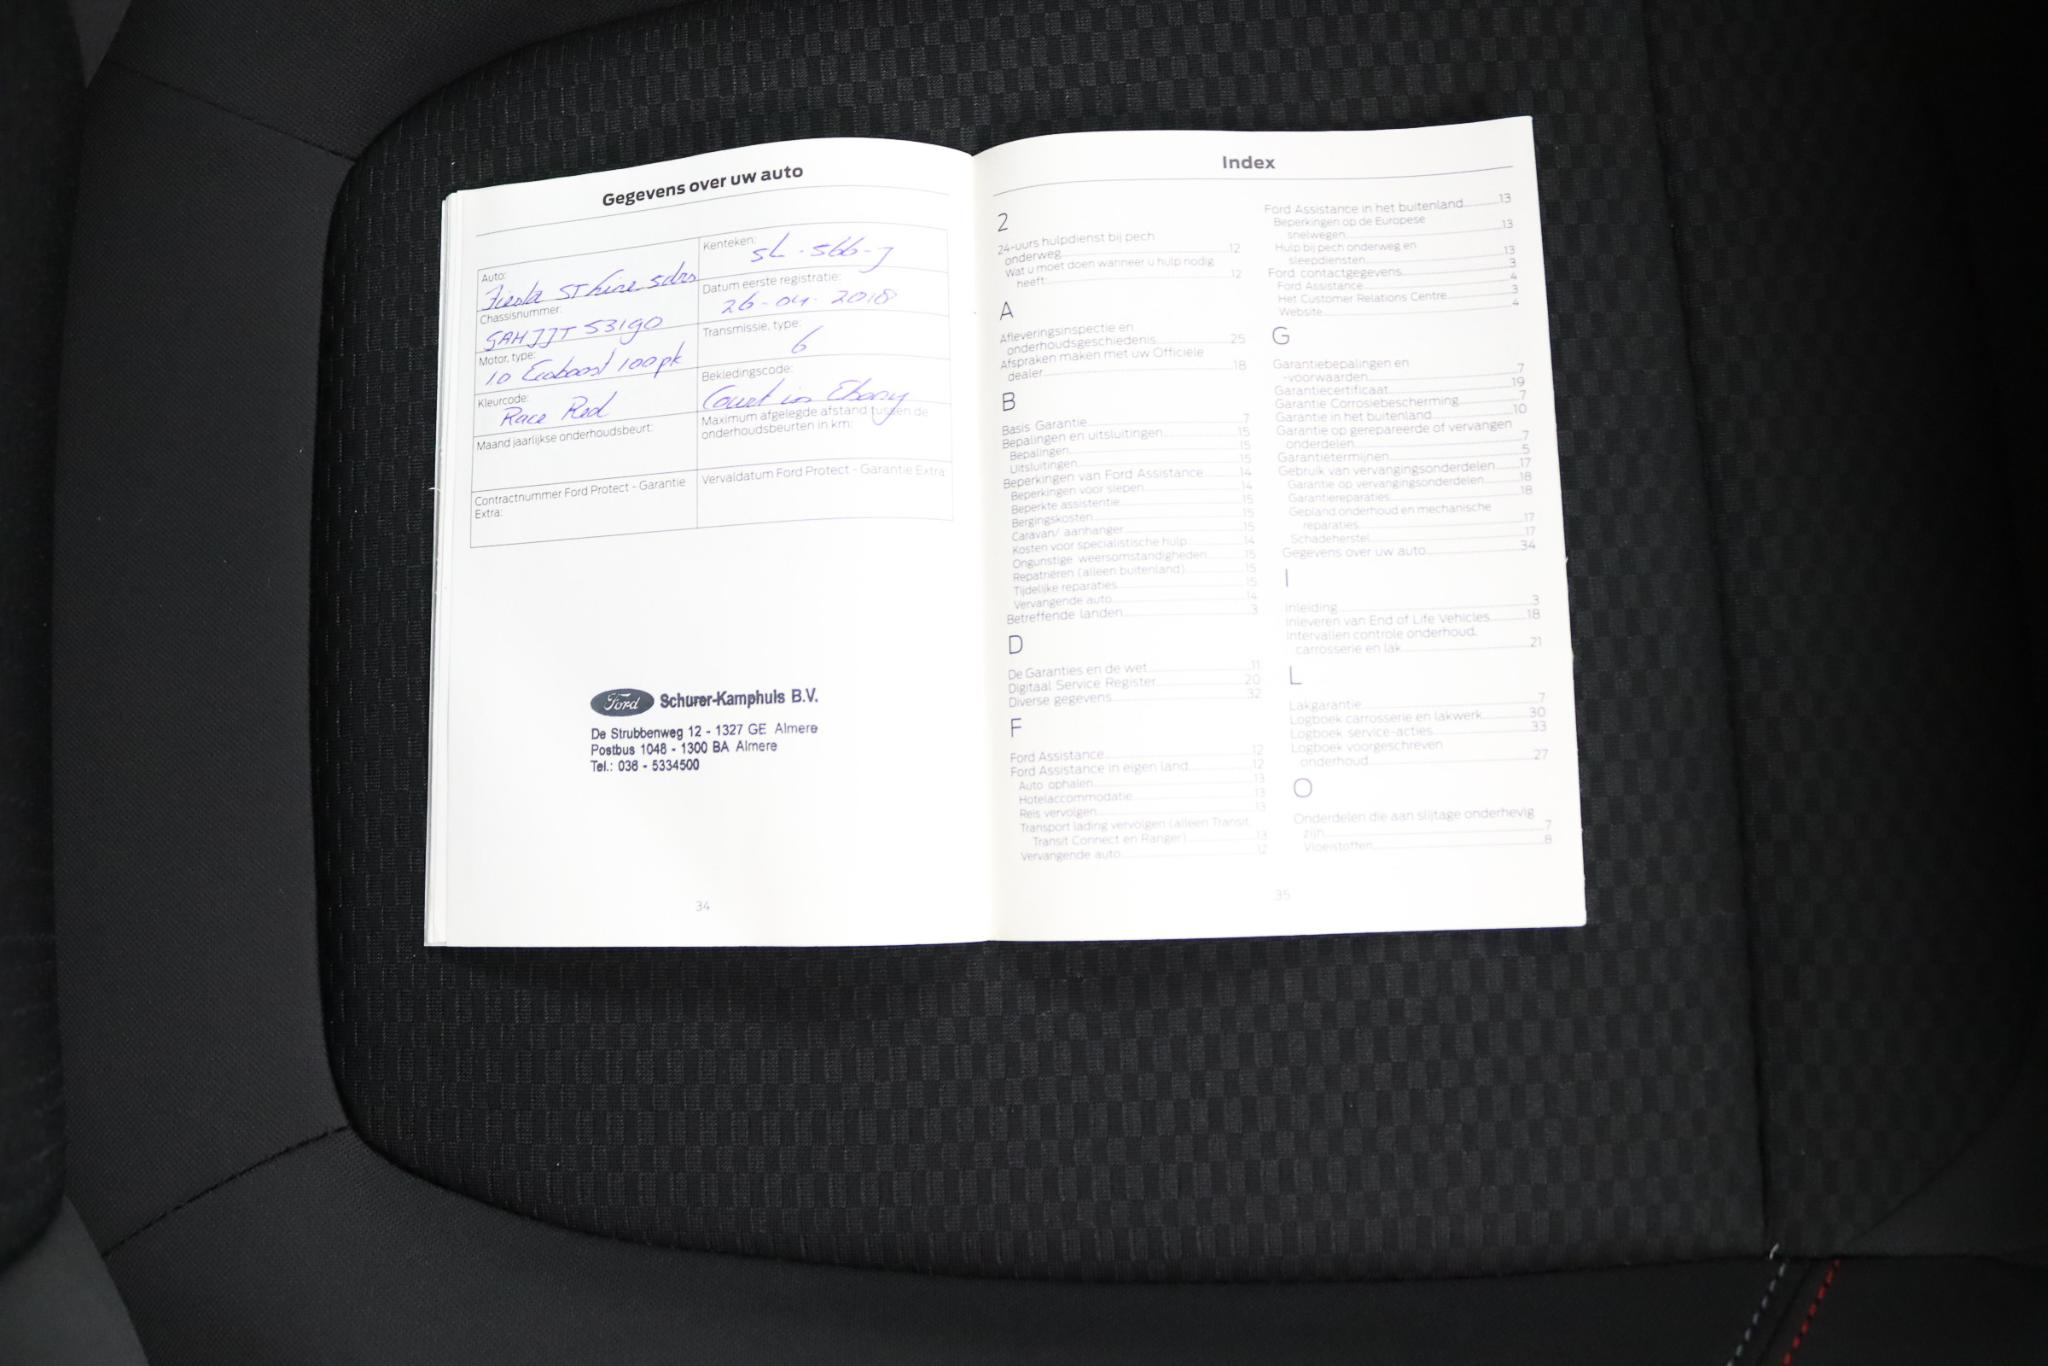 Gegevens over uw auto
Auto:
Fiesta ST Line 5drs
Kenteken:
SL-566-J
Chassisnummer:
GAHJJT53190
Datum eerste registratie:
26-04-2018
Motor, type:
1.0 Ecoboost 100pk
Transmissie, type:
6
Kleurcode:
Race Red
Bekledingscode:
Ebony
Maand jaarlijkse onderhoudsbeurt:
Maximum afgelegde afstand tussen de
onderhoudsbeurten in km:
Contractnummer Ford Protect - Garantie
Extra:
Vervaldatum Ford Protect - Garantie Extra:
Ford Schürer-Kamphuis B.V.
De Strubbenweg 12 - 1327 GE Almere
Postbus 1048 - 1300 BA Almere
Tel.: 036 - 5334500
34
Index
2
24-uurs hulpdienst bij pech
onderweg 12
Wat u moet doen wanneer u hulp nodig
heeft: 12
A
Afleveringsinspectie en
onderhoudsgeschiedenis 25
Afspraken maken met uw Officiële
dealer 18
B
Basis Garantie 7
Bepalingen en uitsluitingen 15
Bepalingen 15
Uitsluitingen 15
Beperkingen van Ford Assistance 14
Beperkingen voor slepen 14
Beperkte assistentie 15
Bergingskosten 15
Caravan/ aanhanger 15
Kosten voor specialistische hulp 14
Ongunstige weersomstandigheden 15
Repatriëren (alleen buitenland) 15
Tijdelijke reparaties 15
Vervangende auto 14
Betreffende landen 3
D
De Garanties en de wet 11
Digitaal Service Register 20
Diverse gegevens 32
F
Ford Assistance 12
Ford Assistance in eigen land 12
Auto ophalen 13
Hotelaccommodatie 13
Reis vervolgen 13
Transport lading vervolgen (alleen Transit,
Transit Connect en Ranger) 13
Vervangende auto 12
Ford Assistance in het buitenland 13
Beperkingen op de Europese
snelwegen 13
Hulp bij pech onderweg en
sleepdiensten 13
Ford contactgegevens 3
Ford Assistance 4
Het Customer Relations Centre 3
Website 4
G
Garantiebepalingen en
-voorwaarden 7
Garantiecertificaat 19
Garantie Corrosiebescherming 7
Garantie in het buitenland 10
Garantie op gerepareerde of vervangen
onderdelen 7
Garantietermijnen 5
Gebruik van vervangingsonderdelen 17
Garantie op vervangingsonderdelen 18
Garantiereparaties 18
Gepland onderhoud en mechanische
reparaties 17
Schadeherstel 17
Gegevens over uw auto 34
I
Inleiding 3
Inleveren van End of Life Vehicles 18
Intervallen controle onderhoud,
carrosserie en lak 21
L
Lakgarantie 7
Logboek carrosserie en lakwerk 30
Logboek service-acties 33
Logboek voorgeschreven
onderhoud 27
O
Onderdelen die aan slijtage onderhevig
zijn 7
Vloeistoffen 8
35